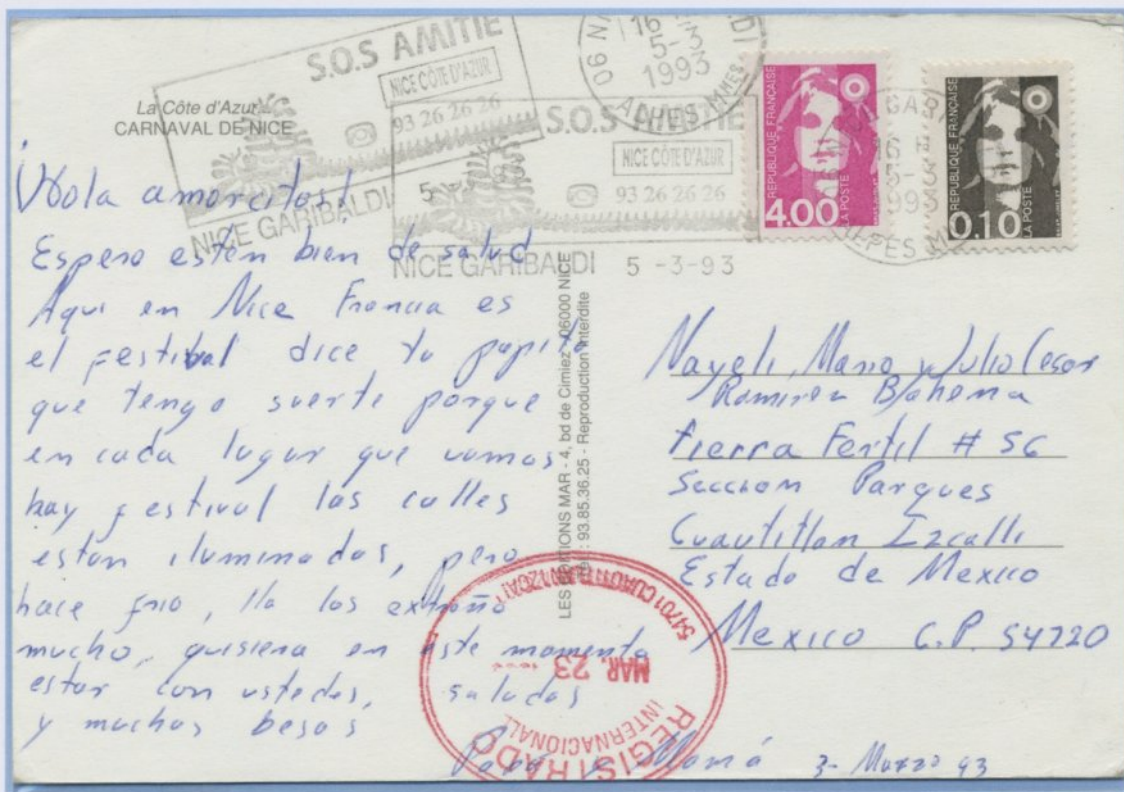 La Côte d'Azur
CARNAVAL DE NICE
S.O.S AMITIE
NICE CÔTE D'AZUR
93 26 26 26
NICE GARIBALDI
16
5-3
1993
S.O.S AMITIE
NICE CÔTE D'AZUR
93 26 26 26
NICE GARIBALDI 5 -3-93
REPUBLIQUE FRANÇAISE
LA POSTE
4.00
REPUBLIQUE FRANÇAISE
LA POSTE
0.10
¡Hola amorcitos!
Espero estén bien de salud
Aqui en Nice Francia es
el festival dice tu papito
que tengo suerte porque
en cada lugar que vamos
hay festival las calles
estan iluminadas, pero
hace frio, Ya los extraño
mucho, quisiera en este momento
estar con ustedes, saludos
y muchos besos
Papá y Mamá 3- Marzo 93
LES EDITIONS MAR - 4, bd de Cimiez - 06000 NICE
: 93.85.36.25 - Reproduction interdite
Nayeli, Mario y Julio Cesar
Ramirez
Tierra Fertil # 56
Seccion Parques
Cuautitlan Izcalli
Estado de Mexico
Mexico C.P. 54720
REGISTRADO
INTERNACIONAL
MAR. 23